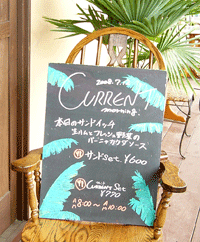 2008.7.
CURRENT
morning.
本日のサンドイッチ
生ハムとフレッシュ野菜の
バーニャカウダソース
サンドSet. ¥600
Current Set
¥770
A 8:00〜A 10:00